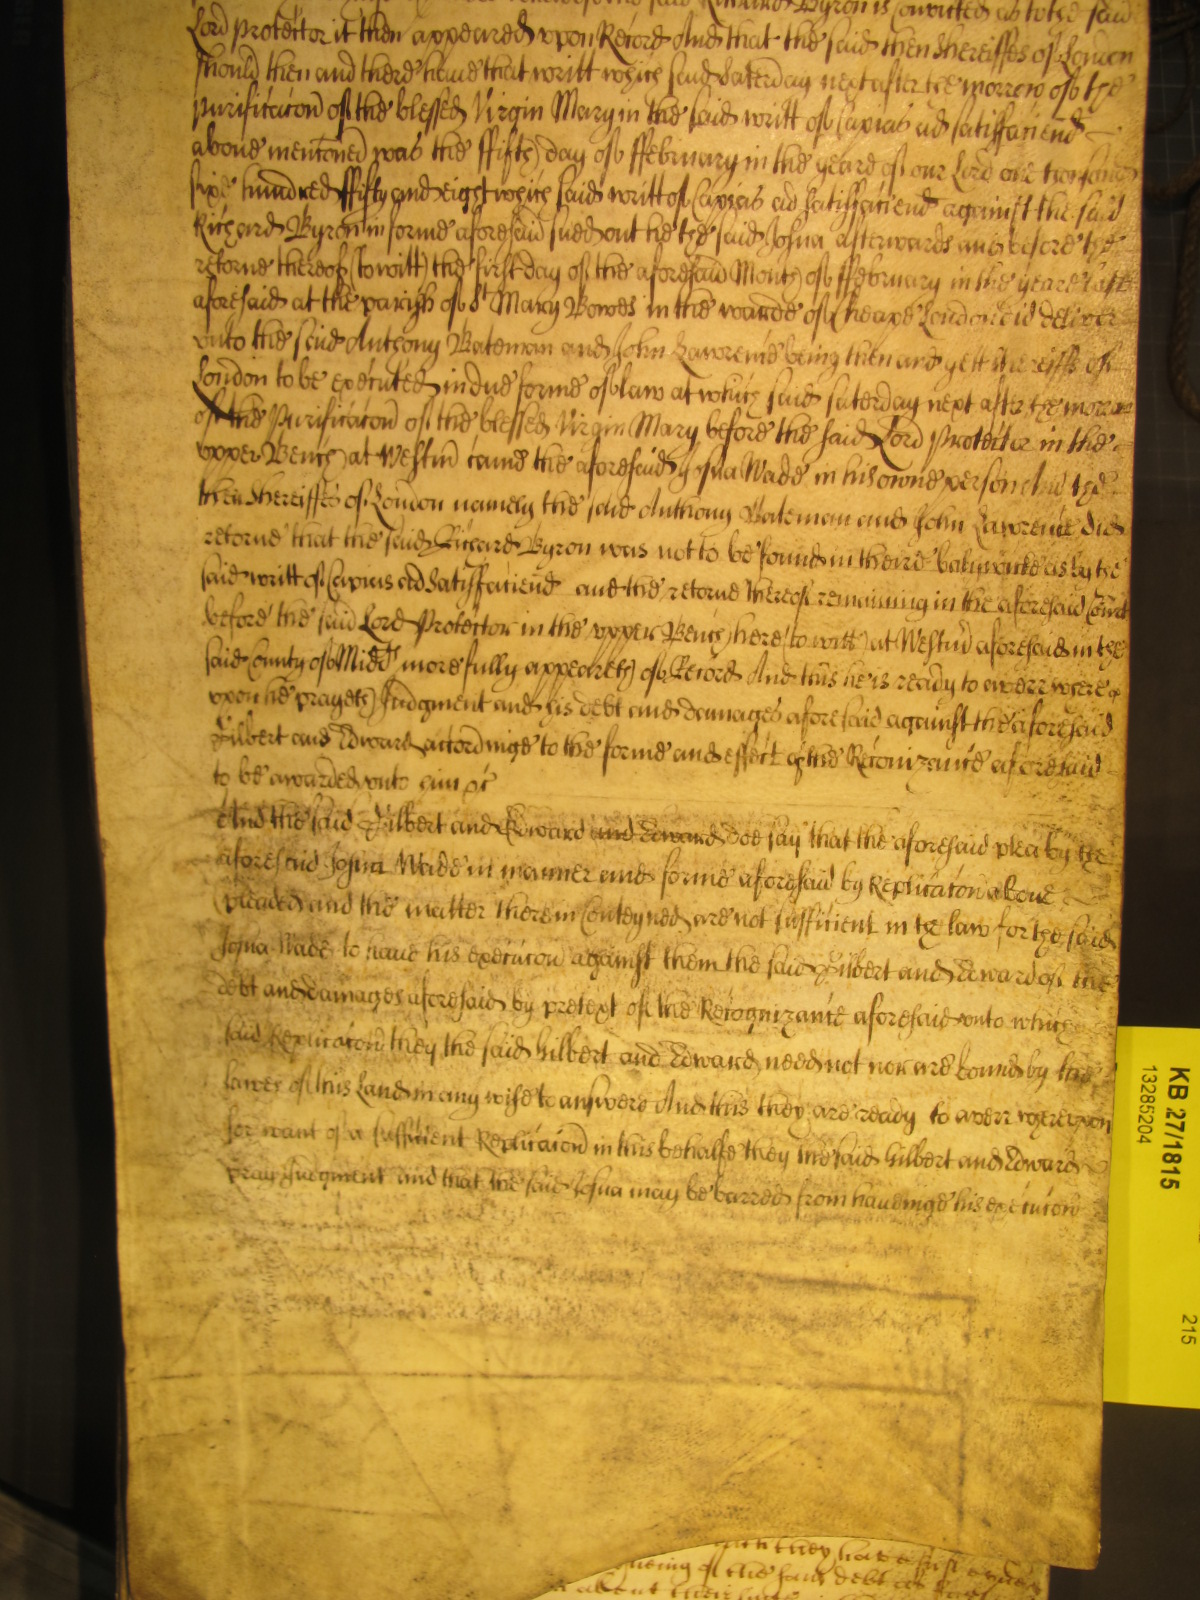 said Richard Byron is convicted as to the said
Lord Protector it then appeared upon Record And that the said then Shereiffes of London
should then and there have that writt which said Saterday next after the morrow of the
Purificacon of the blessed Virgin Mary in the said writt of Capias ad satisfaciend
above menconed was the ffifth day of ffebruary in the yeare of our Lord one thousand
six hundred ffifty and eight which said writt of Capias ad satisfaciend against the said
Richard Byron in forme aforesaid sued out he the said Josua afterwards and before the
retorne thereof (to witt) the first day of the aforesaid Month of ffebruary in the yeare last
aforesaid at the parish of St Mary Bowes in the warde of Cheape London did deliver
unto the said Anthony Bateman and John Lawrence being then and yett Shereiffs of
London to be executed in due forme of law at which said saterday next after the morrow
of the Purificacon of the blessed Virgin Mary before the said Lord Protector in the
upper Bench at Westm came the aforesaid Josua Wade in his owne person And the
then Shereiffes of London namely the said Anthony Bateman and John Lawrence did
retorne that the said Richard Byron was not to be found in theire baliwicke as by the
said writt of Capias ad satisfaciend and the retorne thereof remaining in the aforesaid Court
before the said Lord Protector in the upper Bench here (to witt) at Westm aforesaid in the
said County of Midd more fully appeareth of Record And this he is ready to averr where
upon he prayeth Judgment and his debt and damages aforesaid against the aforesaid
Gilbert and Edward accordinge to the forme and effect of the Recognizance aforesaid
to be awarded unto him &c
And the said Gilbert and Edward and Edward doe say that the aforesaid plea by the
aforesaid Josua Wade in manner and forme aforesaid by Replicacon above
pleaded and the matter therein conteyned are not sufficient in the law for the said
Josua Wade to have his execucon against them the said Gilbert and Edward of the
debt and damages aforesaid by pretext of the Recognizance aforesaid unto which
said Replicacon they the said Gilbert and Edward need not nor are bound by the
lawes of this Land in any wise to answere And this they are ready to averr whereupon
for want of a sufficient Replicacion in this behalfe they the said Gilbert and Edward
pray Judgment and that the said Josua may be barred from haveinge his execucon
KB 27/1815
13285204
215
they have
of the said debt